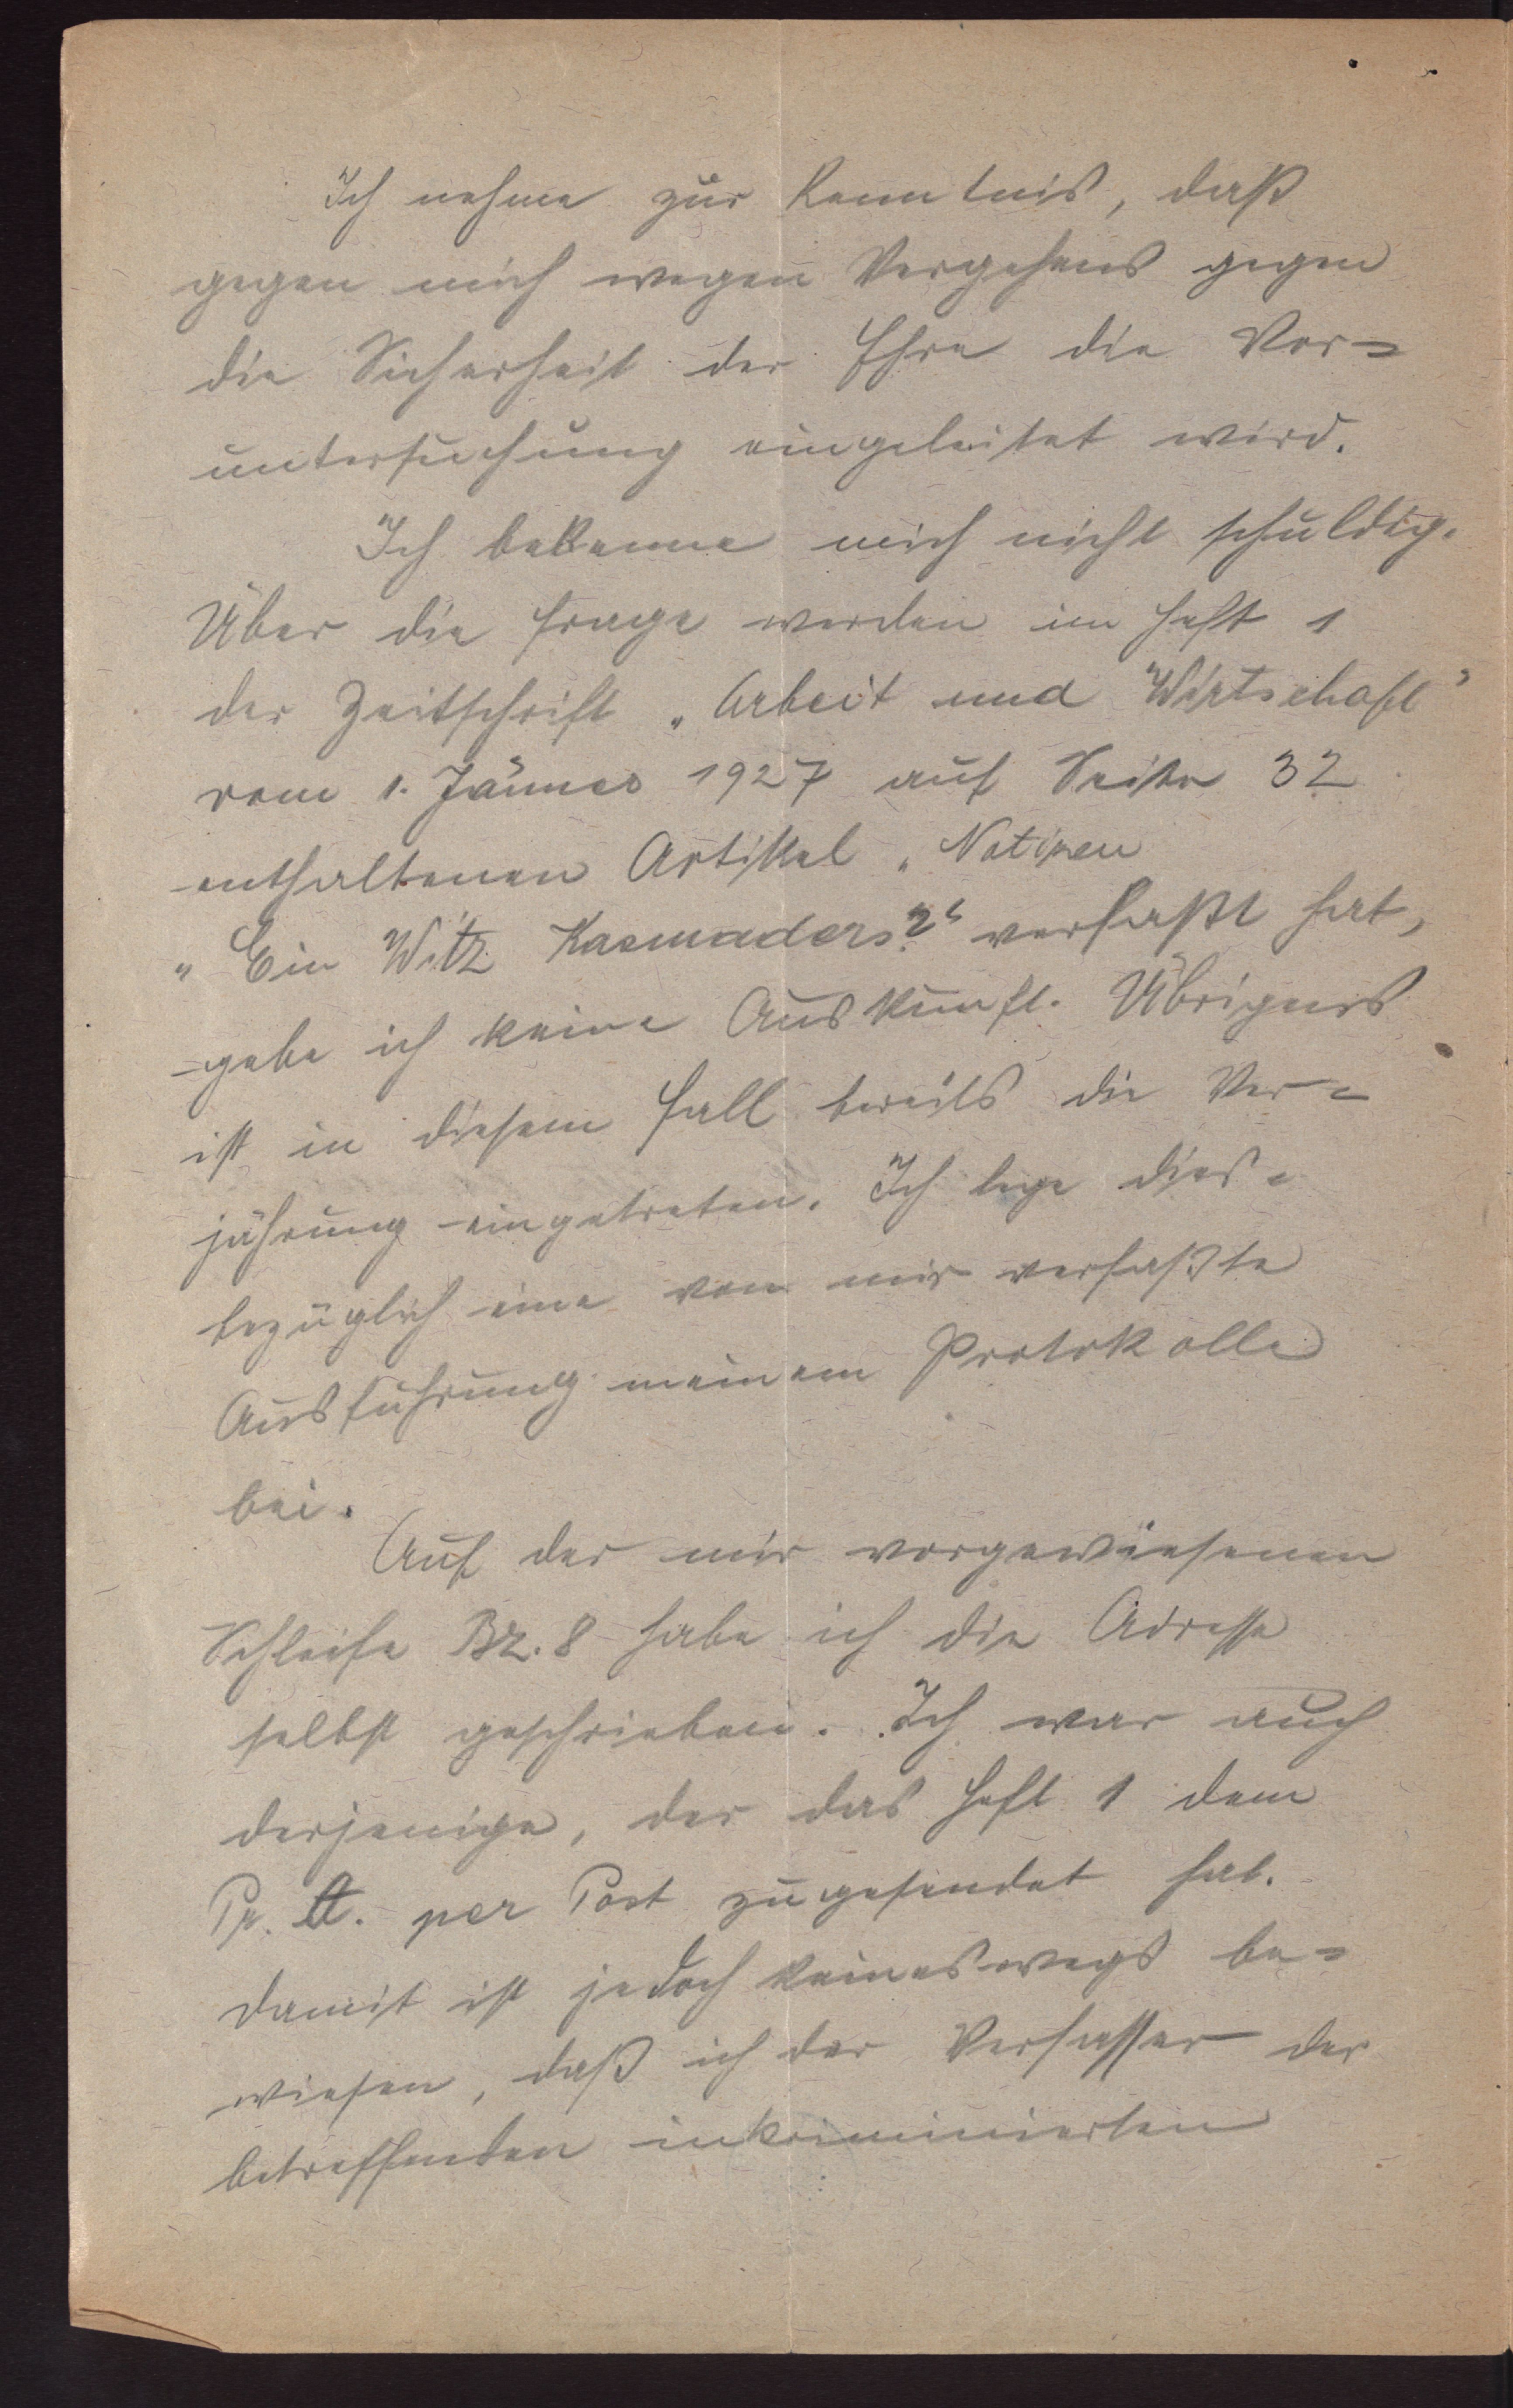 Ich nehme zur Kenntnis, daß
gegen mich wegen Vergehens gegen
die Sicherheit der Ehre die Vor=
untersuchung eingeleitet wird.
Ich bekenne mich nicht schuldig.
Über die Frage werden im Heft 1
der Zeitschrift „Arbeit und Wirtschaft"
vom 1. Jänner 1927 auf Seite 32
enthaltenen Artikel „Notizen
„Ein Witz Kasmaders?" verfaßt hat,
gebe ich keine Auskunft. Übrigens
ist in diesem Fall bereits die Ver=
jährung eingetreten. Ich lege dies=
bezüglich eine von mir verfaßte
Ausführung meinem Protokolle
bei.
Auf der mir vorgewiesenen
Schleife Bz. 8 habe ich die Adresse
selbst geschrieben. Ich war auch
derjenige, der das Heft 1 dem
Pr. A. per Post zugesendet hat.
Damit ist jedoch keineswegs be=
wiesen, daß ich der Verfasser der
betreffenden inkriminierten